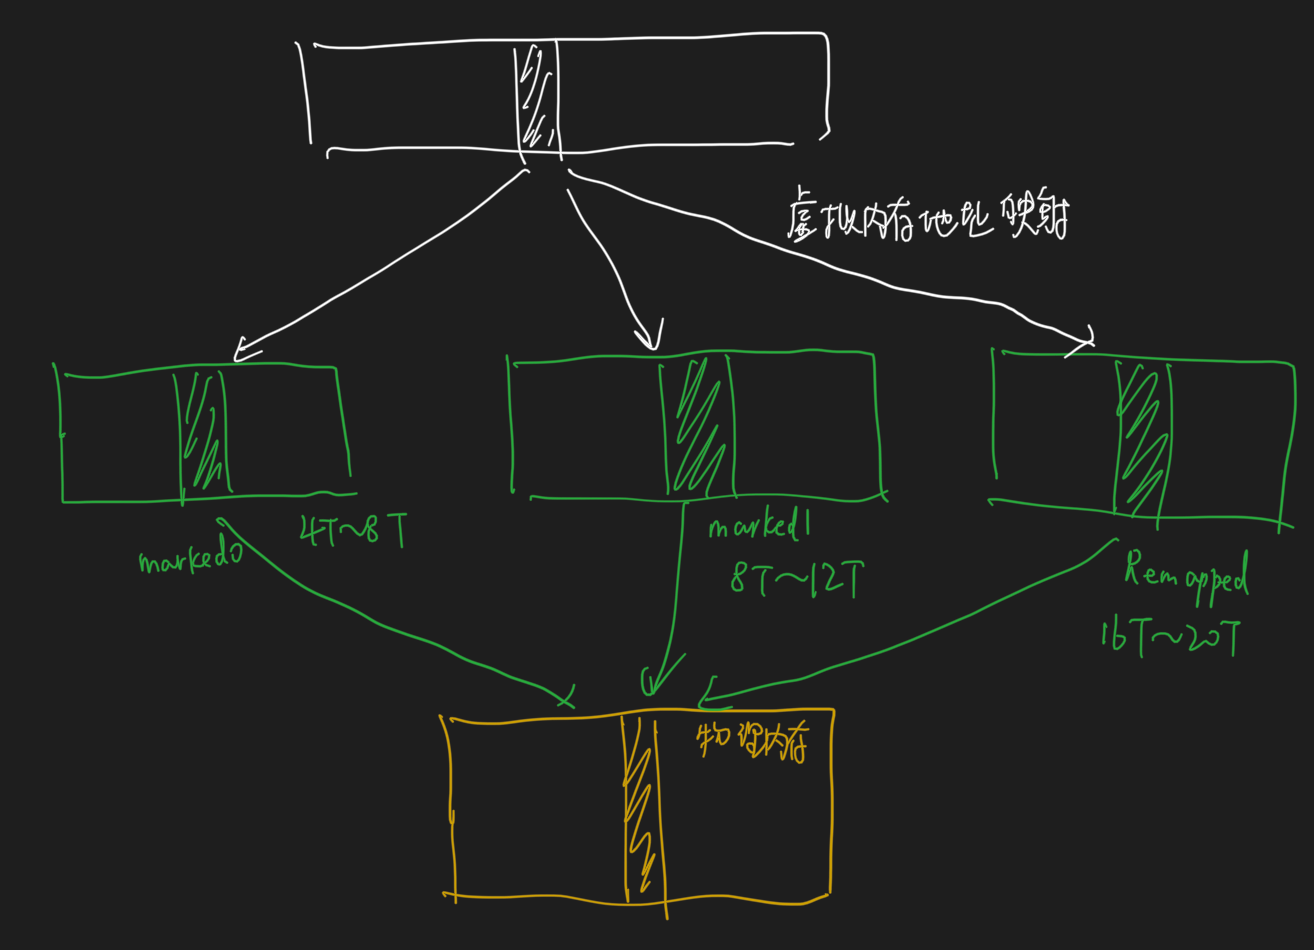 虚拟内存地址映射
marked0
4T~8T
marked1
8T~12T
Remapped
16T~20T
物理内存